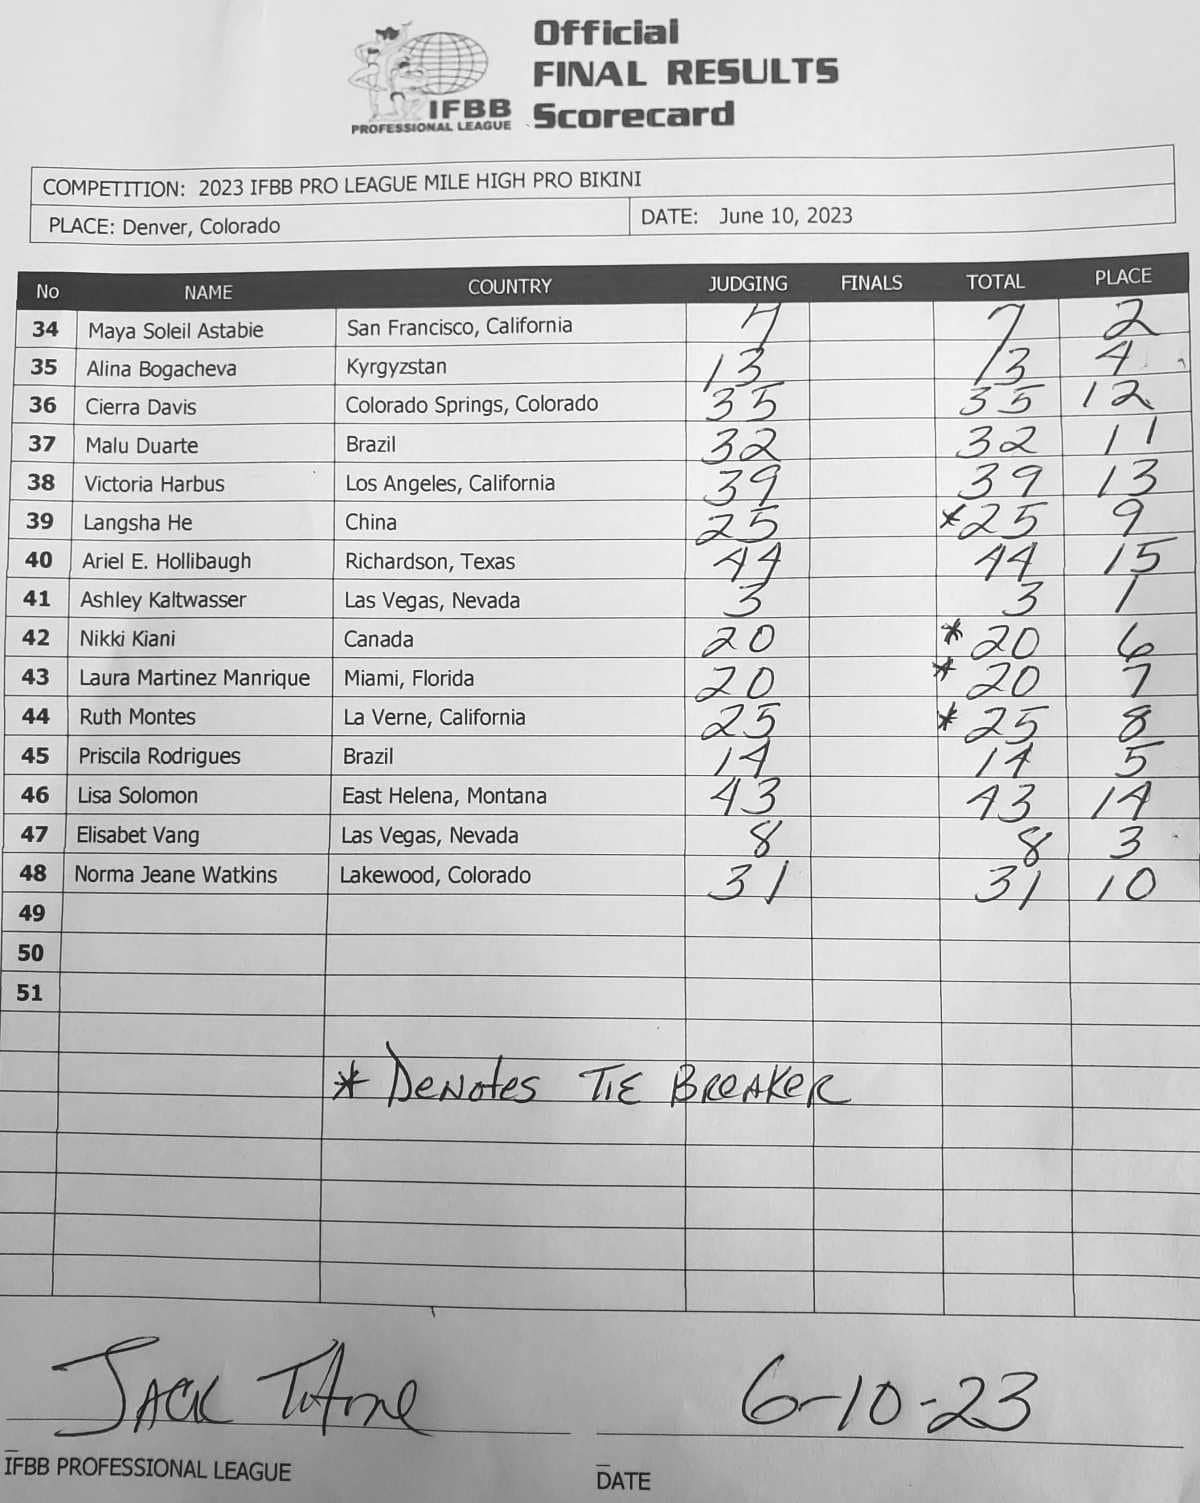 Official
FINAL RESULTS
Scorecard
IFBB
PROFESSIONAL LEAGUE
COMPETITION: 2023 IFBB PRO LEAGUE MILE HIGH PRO BIKINI
PLACE: Denver, Colorado DATE: June 10, 2023
No NAME COUNTRY JUDGING FINALS TOTAL PLACE
34 Maya Soleil Astabie San Francisco, California 7 7 2
35 Alina Bogacheva Kyrgyzstan 13 13 4
36 Cierra Davis Colorado Springs, Colorado 35 35 12
37 Malu Duarte Brazil 32 32 11
38 Victoria Harbus Los Angeles, California 39 39 13
39 Langsha He China 25 *25 9
40 Ariel E. Hollibaugh Richardson, Texas 44 44 15
41 Ashley Kaltwasser Las Vegas, Nevada 3 3 1
42 Nikki Kiani Canada 20 *20 6
43 Laura Martinez Manrique Miami, Florida 20 *20 7
44 Ruth Montes La Verne, California 25 *25 8
45 Priscila Rodrigues Brazil 14 14 5
46 Lisa Solomon East Helena, Montana 43 43 14
47 Elisabet Vang Las Vegas, Nevada 8 8 3
48 Norma Jeane Watkins Lakewood, Colorado 31 31 10
49
50
51
* DENOTES TIE BREAKER
JACK 6-10-23
IFBB PROFESSIONAL LEAGUE DATE